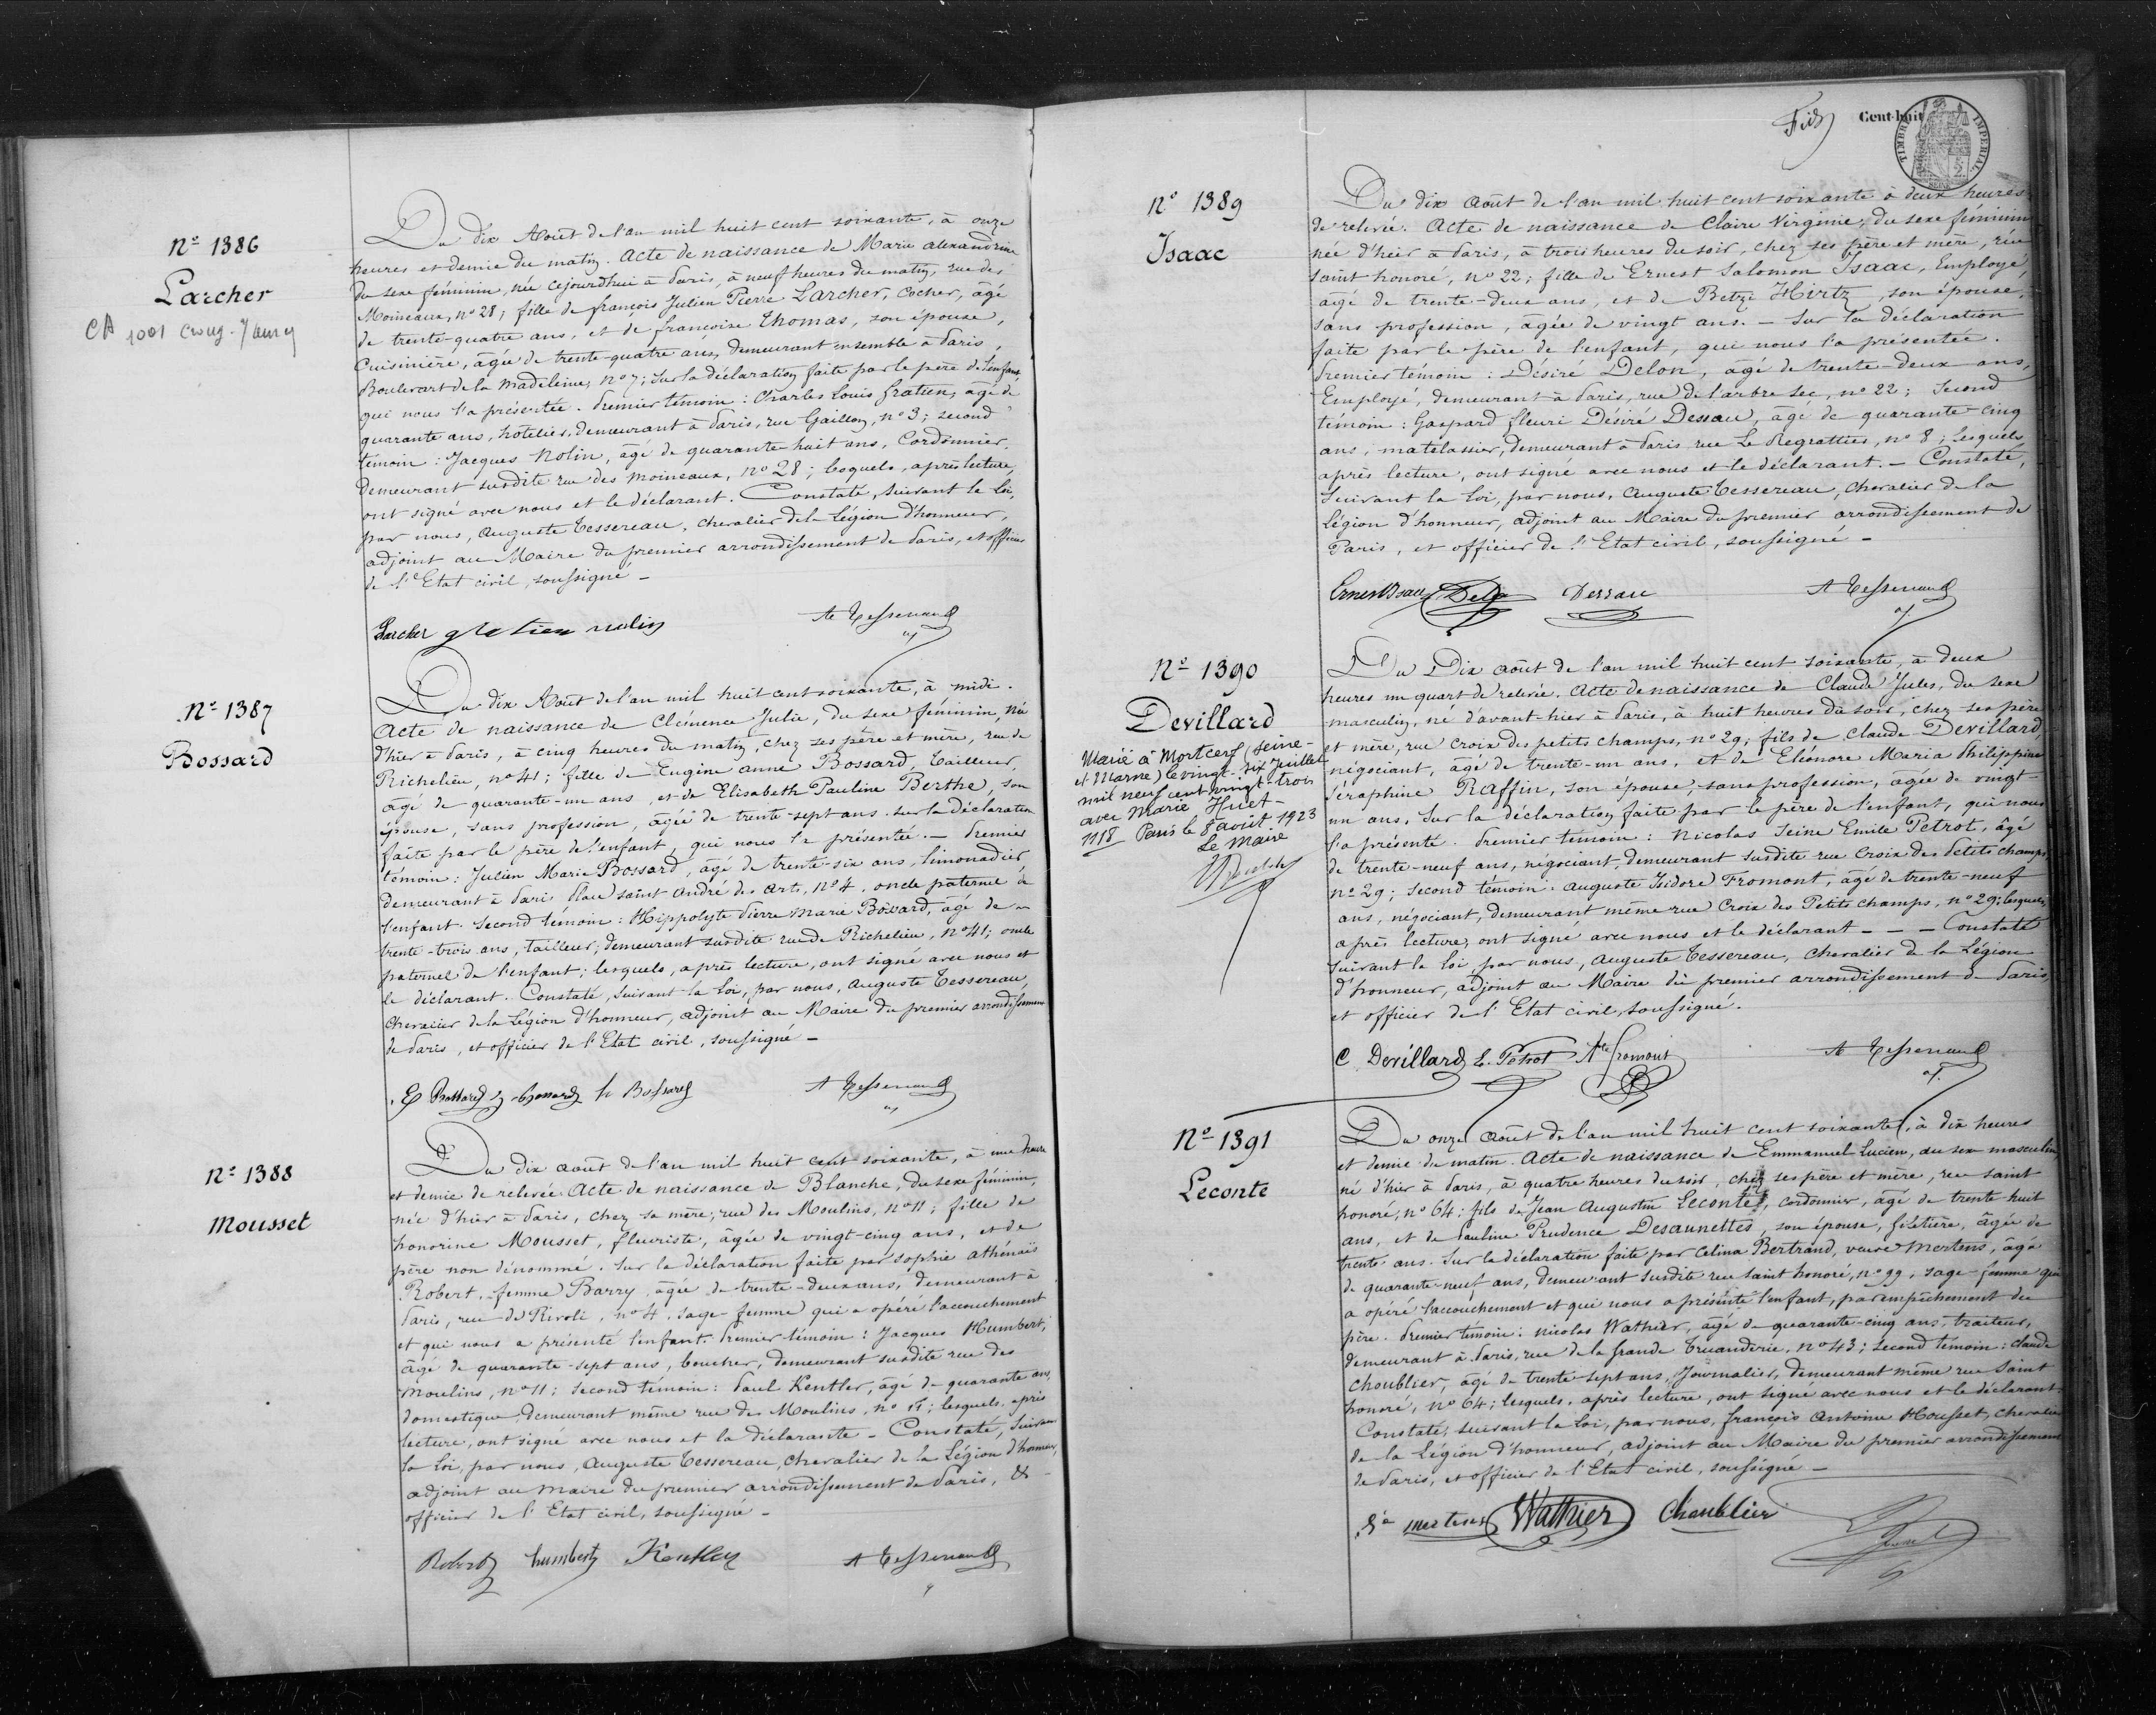 N° 1386
Larcher
Du dix Août de l'an mil huit cent soixante, à onze
heures et demie du matin. Acte de naissance de Marie alexandrine
du sexe féminin, née cejourd'hui à Paris, à neuf heures du matin, rue des
Moineaux, n° 28; fille de françois Julien Pierre Larcher, Cocher, âgé
de trente-quatre ans, et de françoise Thomas, son épouse,
Cuisinière, âgée de trente-quatre ans, demeurant ensemble à Paris,
Boulevart de la Madeleine, n° 7; Sur la déclaration faite par le père de l'enfant
qui nous l'a présentée. Premier témoin: Charles Louis Gratien, âgé de
quarante ans, hotelier, demeurant à Paris, rue Gaillon, n° 3; second
témoin: Jacques Nolin, âgé de quarante huit ans, Cordonnier,
demeurant susdite rue des Moineaux, n° 28; lesquels, après lecture,
ont signé avec nous et le déclarant. Constaté, suivant la loi,
par nous, Auguste Tessereau, chevalier de la Légion d'honneur,
adjoint au Maire du premier arrondissement de Paris, et officier
de l'Etat civil, soussigné -
Larcher gratien nolin
N° 1387
Bossard
Du dix Août de l'an mil huit cent soixante, à midi.
Acte de naissance de Clémence Julie, du sexe féminin, née
d'hier à Paris, à cinq heures du matin, chez ses père et mère, rue de
Richelieu, n° 41; fille de Eugène anne Bossard, Tailleur,
âgé de quarante-un ans, et de Elisabeth Pauline Berthe, son
épouse, sans profession, âgée de trente-sept ans. Sur la déclaration
faite par le père de l'enfant, qui nous l'a présentée. - Premier
témoin: Julien Marie Bossard, âgé de trente-six ans, limonadier,
demeurant à Paris place saint André des Arts, n° 4, oncle paternel de
l'enfant. Second témoin: Hippolyte Pierre Marie Bossard, âgé de
trente-trois ans, tailleur, demeurant susdite rue de Richelieu, n° 41; oncle
paternel de l'enfant; lesquels, après lecture, ont signé avec nous et
le déclarant. Constaté, suivant la loi, par nous, Auguste Tessereau,
chevalier de la Légion d'honneur, adjoint au Maire du premier arrondissement
de Paris, et officier de l'Etat civil, soussigné -
E Bossard Bossard h Bossard A Tessereau
N° 1388
Mousset
Du dix août de l'an mil huit cent soixante, à une heure
et demie de relevée. Acte de naissance de Blanche, du sexe féminin,
née d'hier à Paris, chez sa mère, rue des Moulins, n° 11; fille de
honorine Mousset, fleuriste, âgée de vingt-cinq ans, et de
père non dénommé. Sur la déclaration faite par Sophie athénaïs
Robert, femme Barry, âgée de trente-deux ans, demeurant à
Paris, rue de Rivoli, n° 4, sage-femme qui a opéré l'accouchement
et qui nous a présenté l'enfant. Premier témoin: Jacques Humbert,
âgé de quarante-sept ans, boucher, demeurant susdite rue des
Moulins, n° 11; second témoin: Paul Kentler, âgé de quarante ans,
domestique, demeurant même rue des Moulins, n° 11; lesquels, après
lecture, ont signé avec nous et la déclarante - Constaté, suivant
la loi, par nous, Auguste Tessereau, chevalier de la Légion d'honneur,
adjoint au maire du premier arrondissement de Paris, &
officier de l'Etat civil, soussigné -
Robert humbert Kentler A Tessereau
Cent-huit
TIMBRE IMPERIAL
N° 1389
Isaac
Du dix août de l'an mil huit cent soixante à deux heures
de relevée. Acte de naissance de Claire Virginie, du sexe féminin
née d'hier à Paris, à trois heures du soir, chez ses père et mère, rue
saint honoré, n° 22; fille de Ernest Salomon Isaac, Employé,
âgé de trente-deux ans, et de Betzi Hirtz, son épouse,
sans profession, âgée de vingt ans. - Sur la déclaration
faite par le père de l'enfant, qui nous l'a présentée.
Premier témoin: Désiré Delon, âgé de trente-deux ans,
Employé, demeurant à Paris, rue de l'arbre sec, n° 22; second
témoin: Gaspard fleuri Désiré Dessau, âgé de quarante-cinq
ans, matelassier, demeurant à Paris rue Le Regrattier, n° 8; lesquels,
après lecture, ont signé avec nous et le déclarant. - Constaté,
suivant la loi, par nous, Auguste Tessereau, Chevalier de la
Légion d'honneur, adjoint au Maire du premier arrondissement de
Paris, et officier de l'Etat civil, soussigné -
Ernest Isaac Delon Dessau A Tessereau
N° 1390
Devillard
Marié à Mortcerf (Seine-
et Marne) le vingt-six Juillet
mil neuf cent vingt trois
avec Marie Huet -
1118 Paris le 8 août 1923
Le Maire
Du Dix août de l'an mil huit cent soixante, à deux
heures un quart de relevée. Acte de naissance de Claude Jules, du sexe
masculin, né d'avant-hier à Paris, à huit heures du soir, chez ses père
et mère, rue croix des petits champs, n° 29; fils de Claude Devillard,
négociant, âgé de trente-un ans, et de Eléonore Maria Philippine
Séraphine Raffin, son épouse, sans profession, âgée de vingt-
un ans. Sur la déclaration faite par le père de l'enfant, qui nous
l'a présenté. Premier témoin: Nicolas Seine Emile Petrot, âgé
de trente-neuf ans, négociant, demeurant susdite rue Croix des Petits champs,
n° 29; second témoin: Auguste Isidore Fromont, âgé de trente-neuf
ans, négociant, demeurant même rue Croix des Petits champs, n° 29; lesquels,
après lecture, ont signé avec nous et le déclarant - - - Constaté
suivant la loi par nous, Auguste Tessereau, chevalier de la Légion
d'honneur, adjoint au Maire du premier arrondissement de Paris,
et officier de l'Etat civil, soussigné.
C. Devillard E. Petrot Ate fromont A Tessereau
N° 1391
Leconte
Du onze août de l'an mil huit cent soixante, à dix heures
et demie du matin. Acte de naissance de Emmanuel Lucien, du sexe masculin
né d'hier à Paris, à quatre heures du soir, chez ses père et mère, rue saint
honoré, n° 64; fils de Jean Augustin Leconte, cordonnier, âgé de trente-huit
ans, et de Pauline Prudence Desaunettes, son épouse, giletière, âgée de
trente ans. Sur la déclaration faite par Celina Bertrand, veuve Mertens, âgée
de quarante-neuf ans, demeurant susdite rue saint honoré, n° 99, sage-femme qui
a opéré l'accouchement et qui nous a présenté l'enfant, par empêchement du
père. Premier témoin: Nicolas Wathier, âgé de quarante-cinq ans, traiteur,
demeurant à Paris, rue de la grande truanderie, n° 43; second témoin: Claude
Choublier, âgé de trente-sept ans, Journalier, demeurant même rue saint
honoré, n° 64; lesquels, après lecture, ont signé avec nous et le déclarant.
Constaté, suivant la loi, par nous, françois Antoine Housset, Chevalier
de la Légion d'honneur, adjoint au Maire du premier arrondissement
de Paris, et officier de l'Etat civil, soussigné -
Ve mertens Wathier Choublier